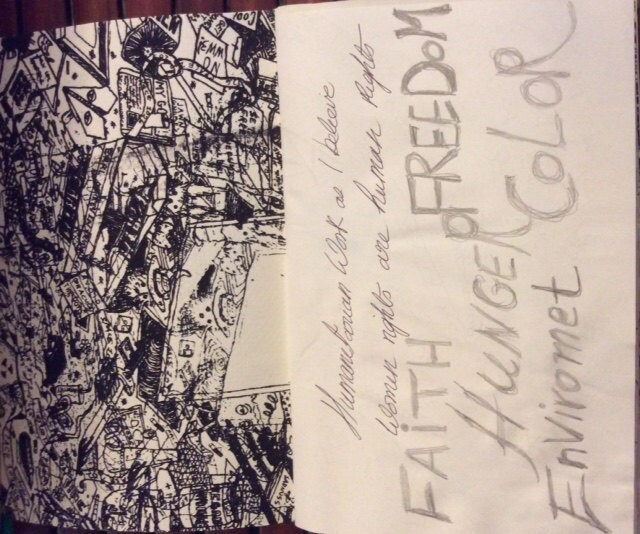 Humanitarian Work as I believe
Women rights are human Rights
FAiTH OF FREEDOM
HUNGER COLOR
Enviromet